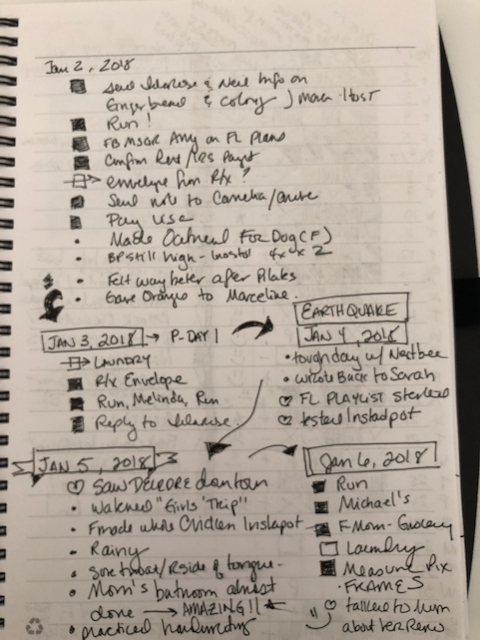 Jan 2, 2018
Send & New Info on
Gingerbread & Colony
Run!
FB MSGR Amy on FL Plans
Confirm Rent/IRS Paymt
envelope from Rx?
Send note to Camelia/
Pay Use
Made Oatmeal For Dog (F)
BP still high - 4x x 2
Felt way better after Pilates
Gave Orange to Marceline.
JAN 3, 2018 → P-DAY 1
LAUNDRY
R/x Envelope
Run, Melinda, Run
Reply to
EARTHQUAKE
JAN 4, 2018
tough day w/
wrote Back to Sarah
FL PLAYLIST started
tested Instapot
JAN 5, 2018
Saw DEIRDRE downtown
Watched "Girls' Trip"
F made whole Chicken Instapot
Rainy
Sore throat/R side of tongue
Mom's bathroom almost
done → AMAZING!!
practiced
Jan 6, 2018
Run
Michael's
F-Mom-Grocery
Laundry
Measure Pix
FRAMES
talked to Mom
about her Reno